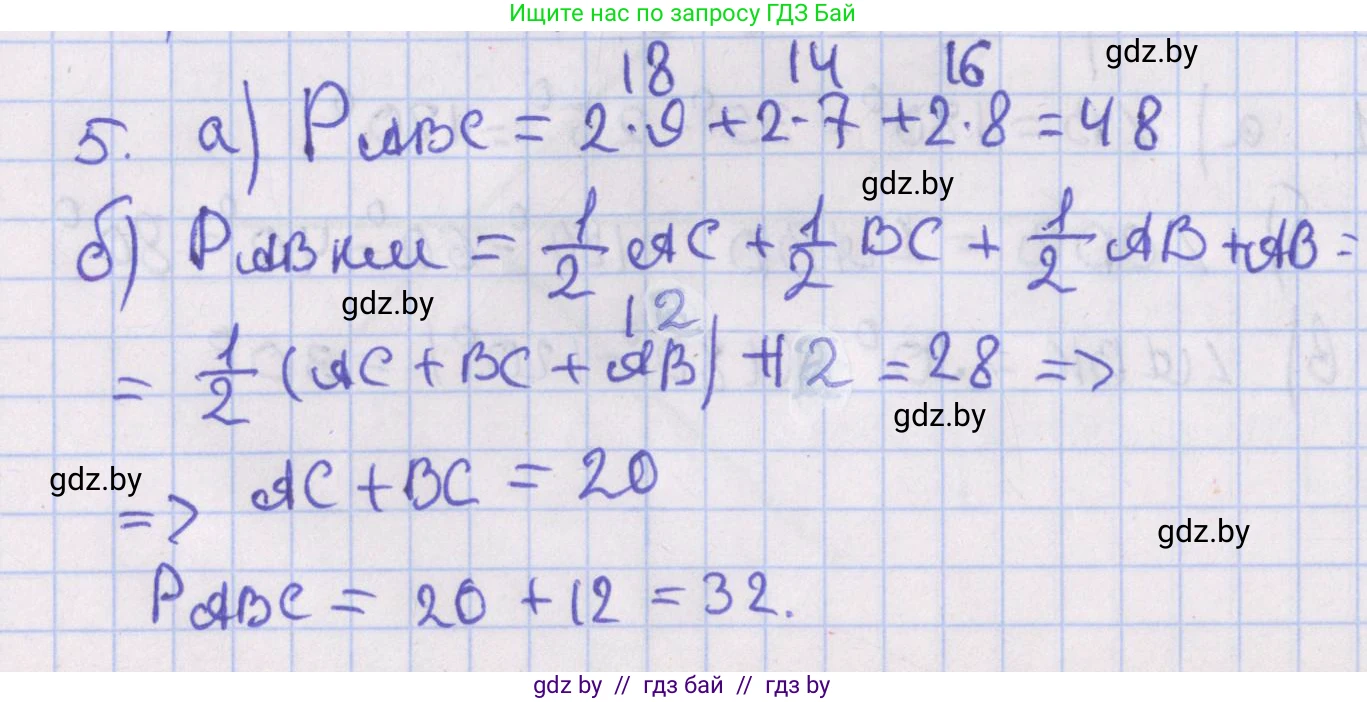 Ищите нас по запросу ГДЗ Бай
gdz.by
18 14 16
5. а) PABC = 2·9 + 2·7 + 2·8 = 48
gdz.by
б) PABKM = 1/2 AC + 1/2 BC + 1/2 AB + AB =
gdz.by
12
= 1/2 (AC + BC + AB) + 12 = 28 =>
gdz.by
gdz.by
=> AC + BC = 20
gdz.by
PABC = 20 + 12 = 32.
gdz by // гдз бай // гдз by